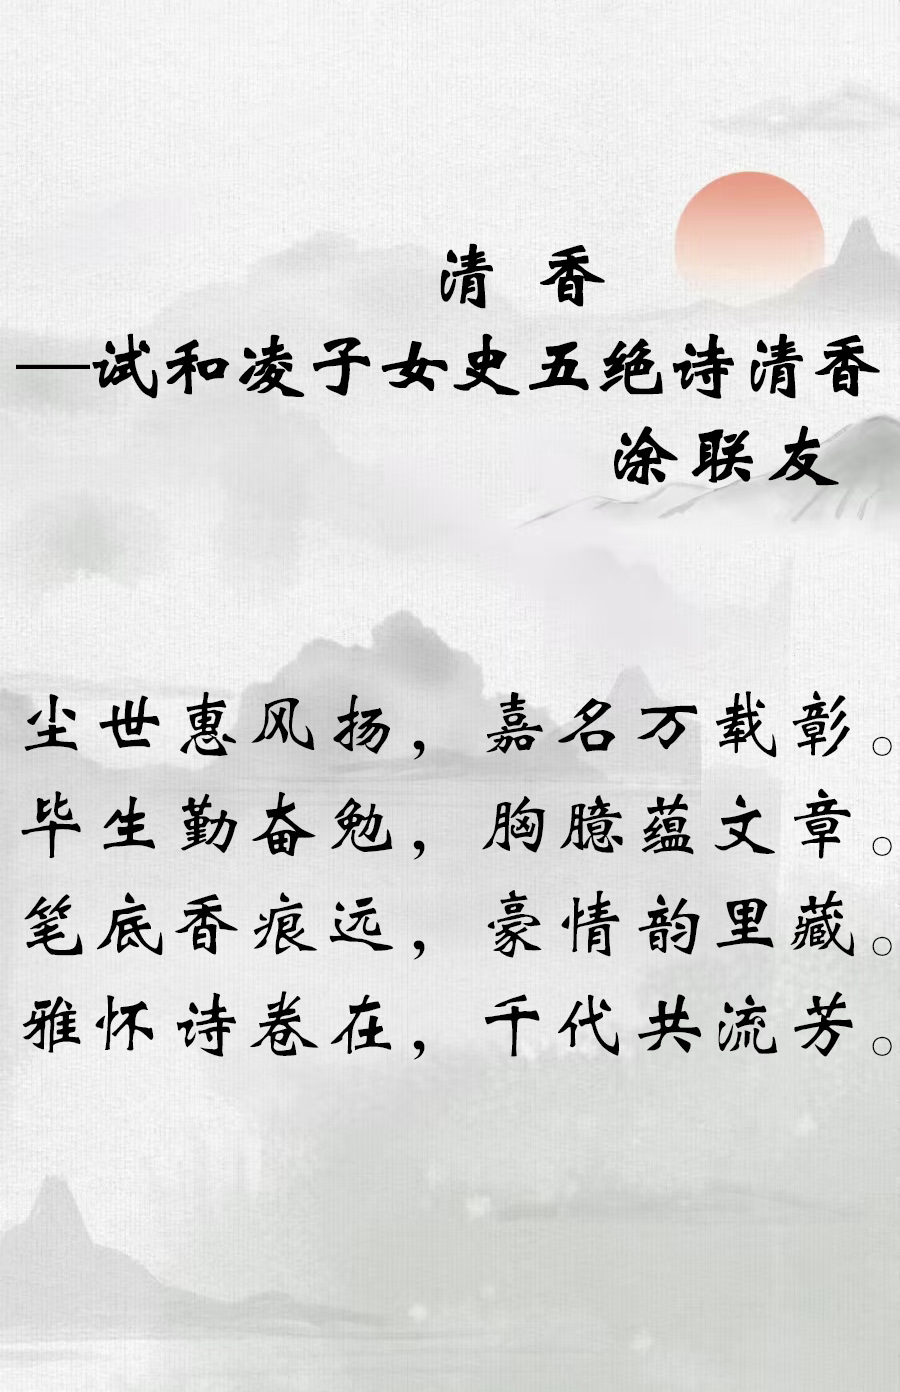 清 香
—试和凌子女史五绝诗清香
涂联友
尘世惠风扬，嘉名万载彰。
毕生勤奋勉，胸臆蕴文章。
笔底香痕远，豪情韵里藏。
雅怀诗卷在，千代共流芳。